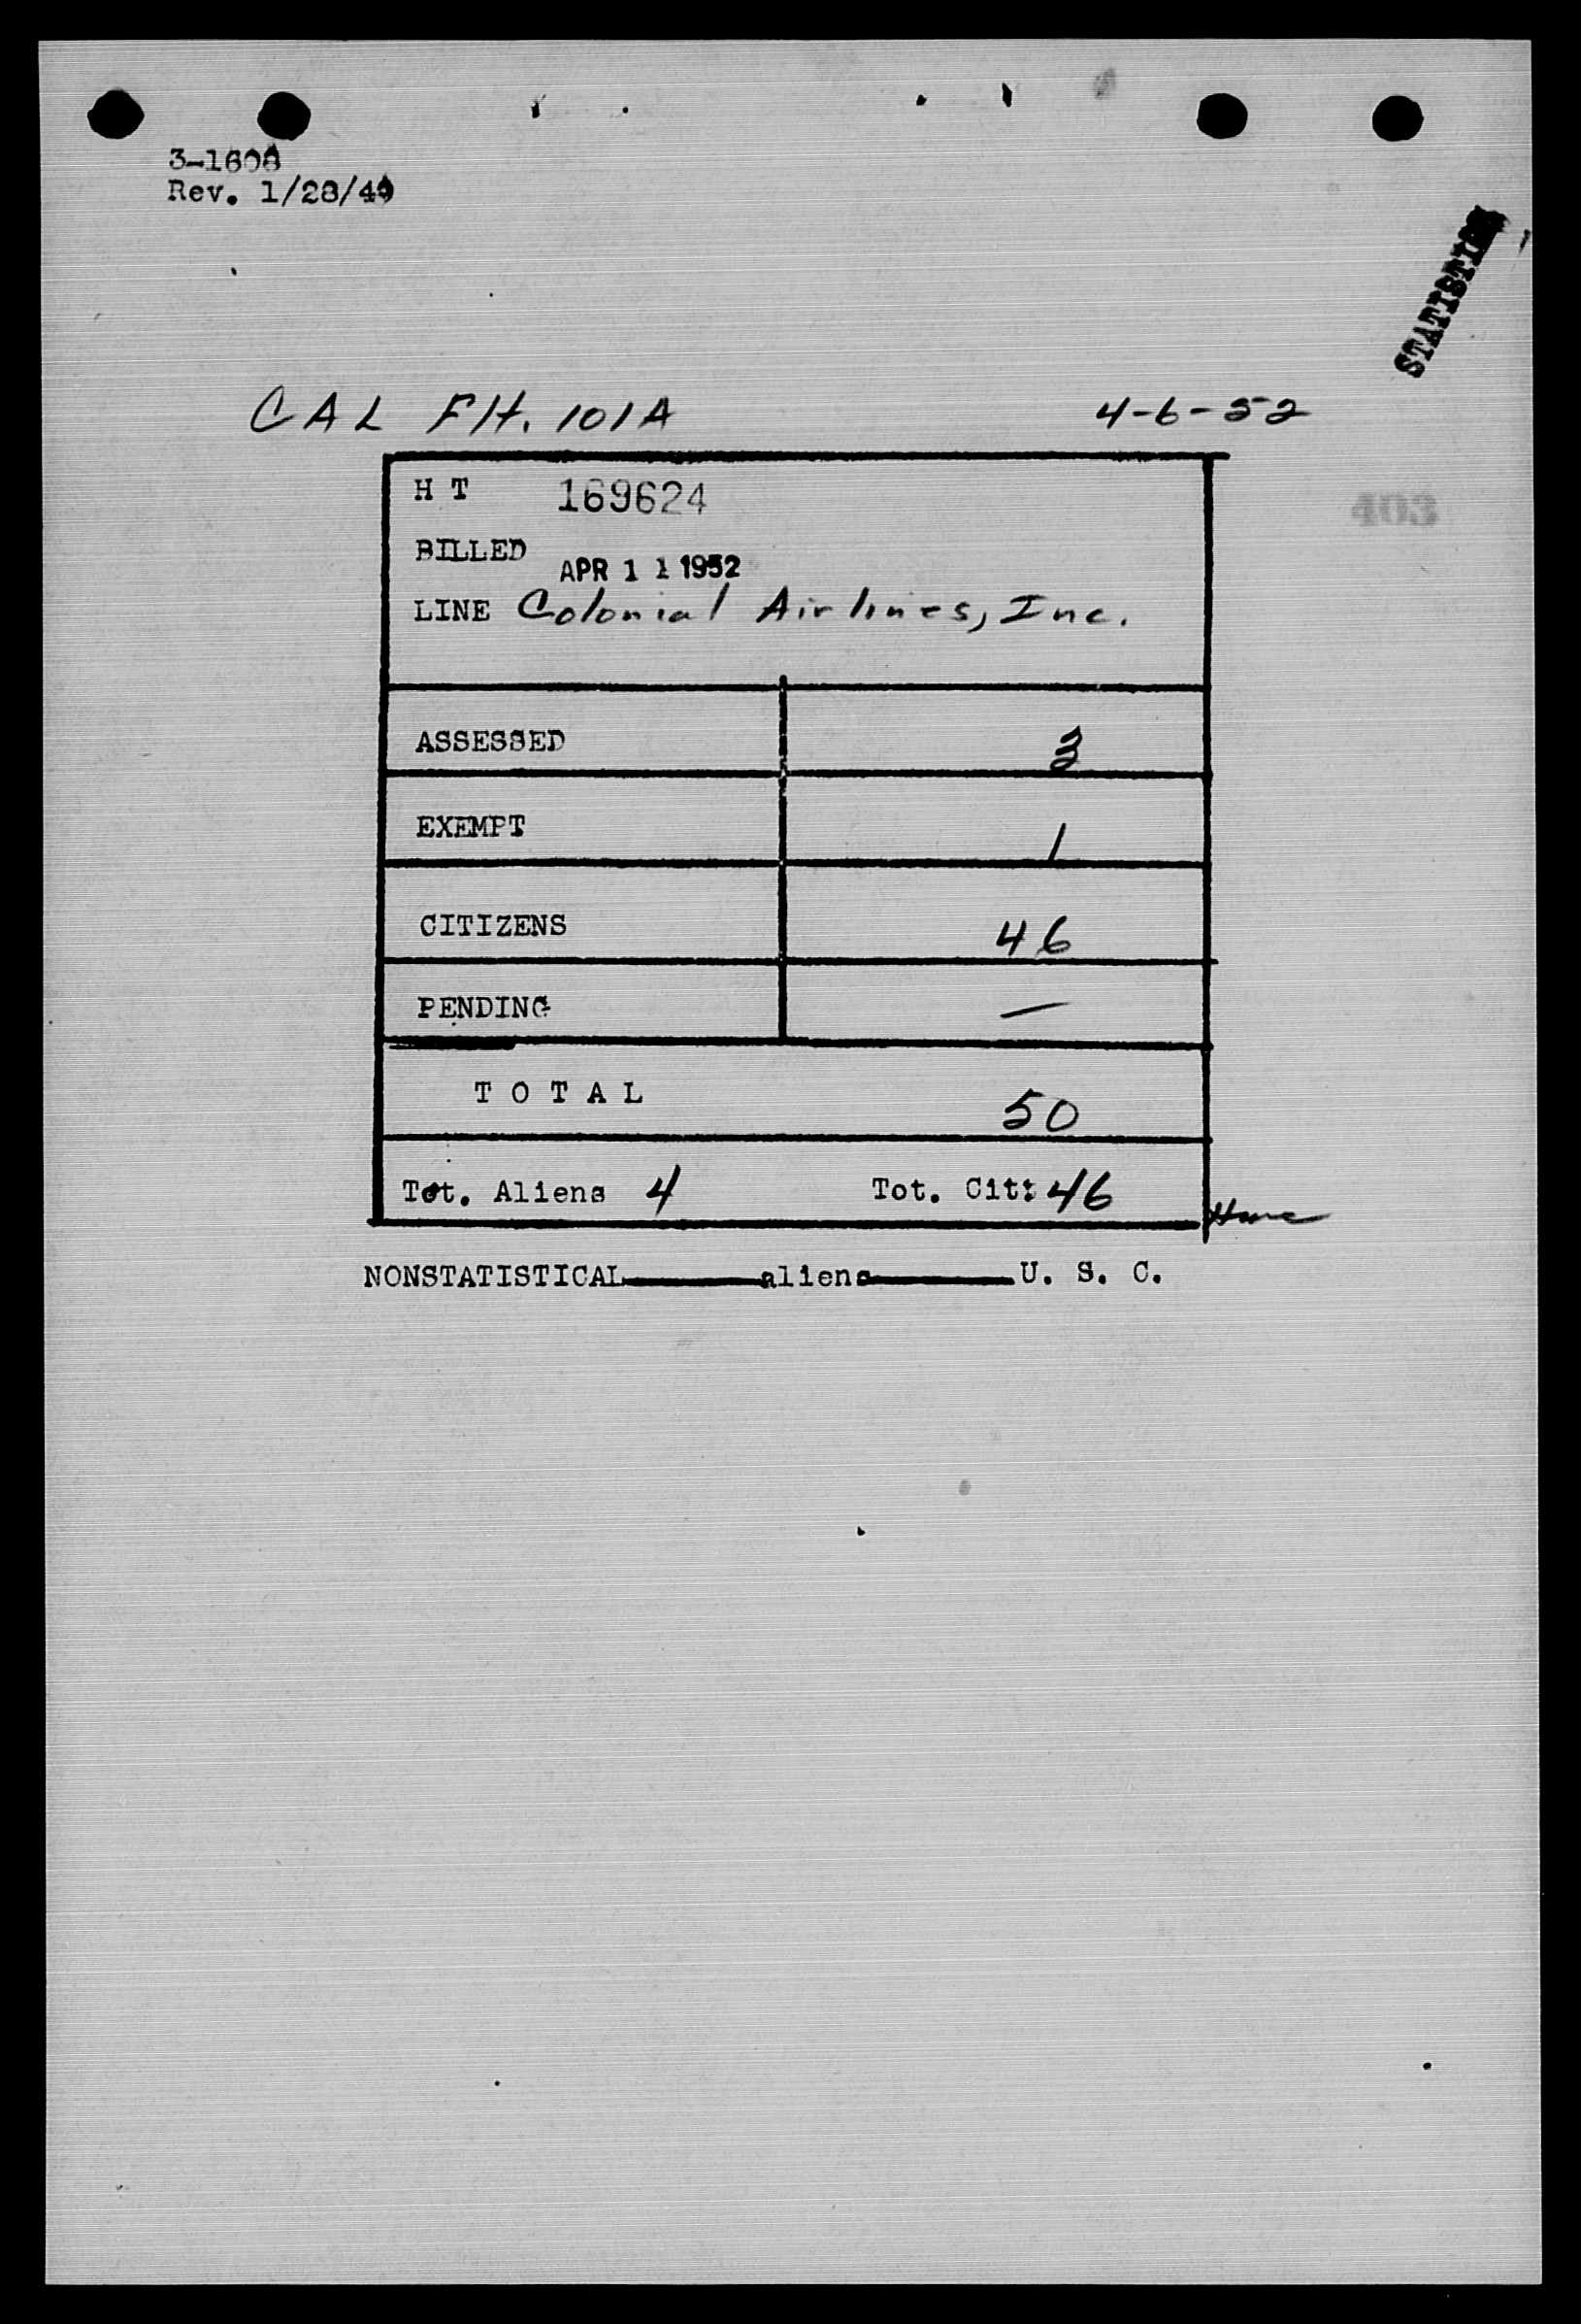 3-1608
Rev. 1/28/49
STATISTICS
CAL Flt. 101A 4-6-52
H T 169624
403
BILLED APR 11 1952
LINE Colonial Airlines, Inc.
ASSESSED 3
EXEMPT 1
CITIZENS 46
PENDING —
TOTAL 50
Tot. Aliens 4 Tot. Cit: 46
NONSTATISTICAL aliens U. S. C.